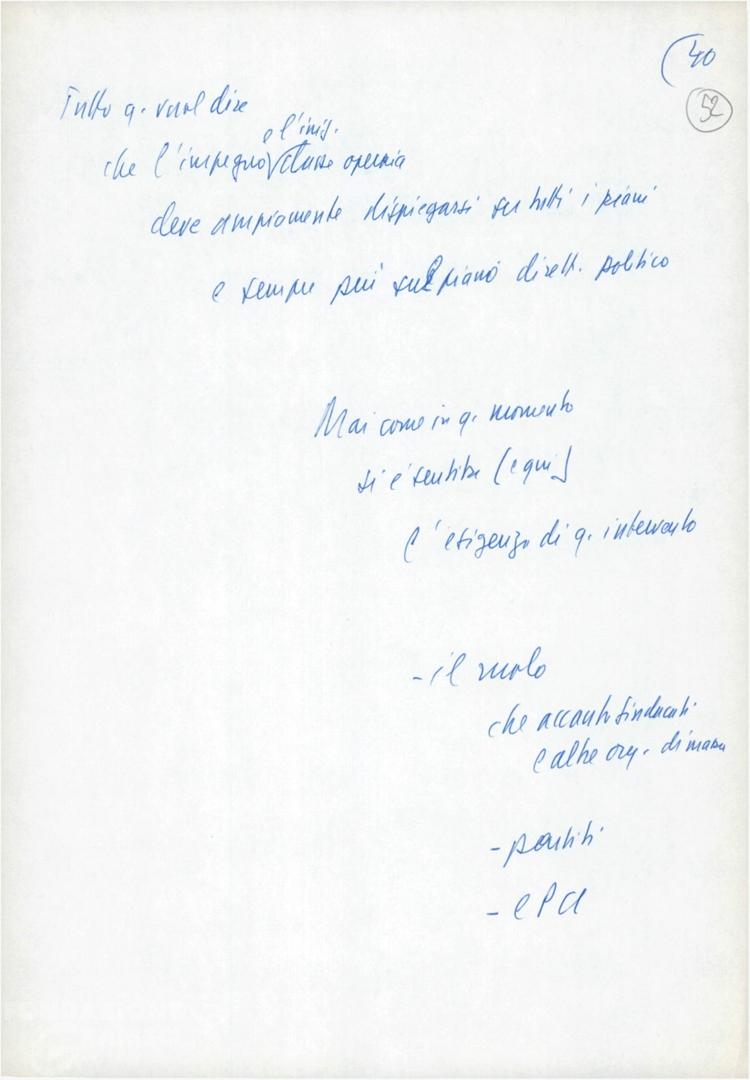 (40
52
Tutto q. vuol dire
e l'iniz.
che l'impegno classe operaia
deve ampiamente dispiegarsi su tutti i piani
e sempre più sul piano dirett. politico
Mai come in q. momento
si è sentita (e qui)
l'esigenza di q. intervento
- il ruolo
che accanto sindacati
e altre org. di massa
- partiti
- e PCI